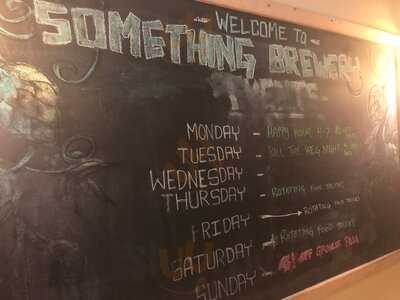 WELCOME TO -
SOMETHING BREWERY
MONDAY - HAPPY HOUR 4-7
TUESDAY - KEG NIGHT
WEDNESDAY -
THURSDAY - ROTATING FOOD TRUCKS
FRIDAY ROTATING FOOD TRUCKS
SATURDAY - ROTATING FOOD TRUCKS
SUNDAY - OFF GROWLER FILLS